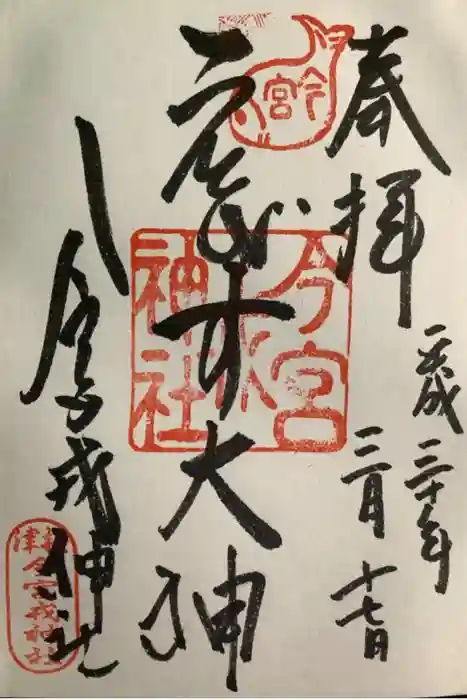 奉拝
平成三十年
三月
十七日
今宮
ゑびす大神
今宮
戎
神社
今宮戎神社
津今宮戎神社